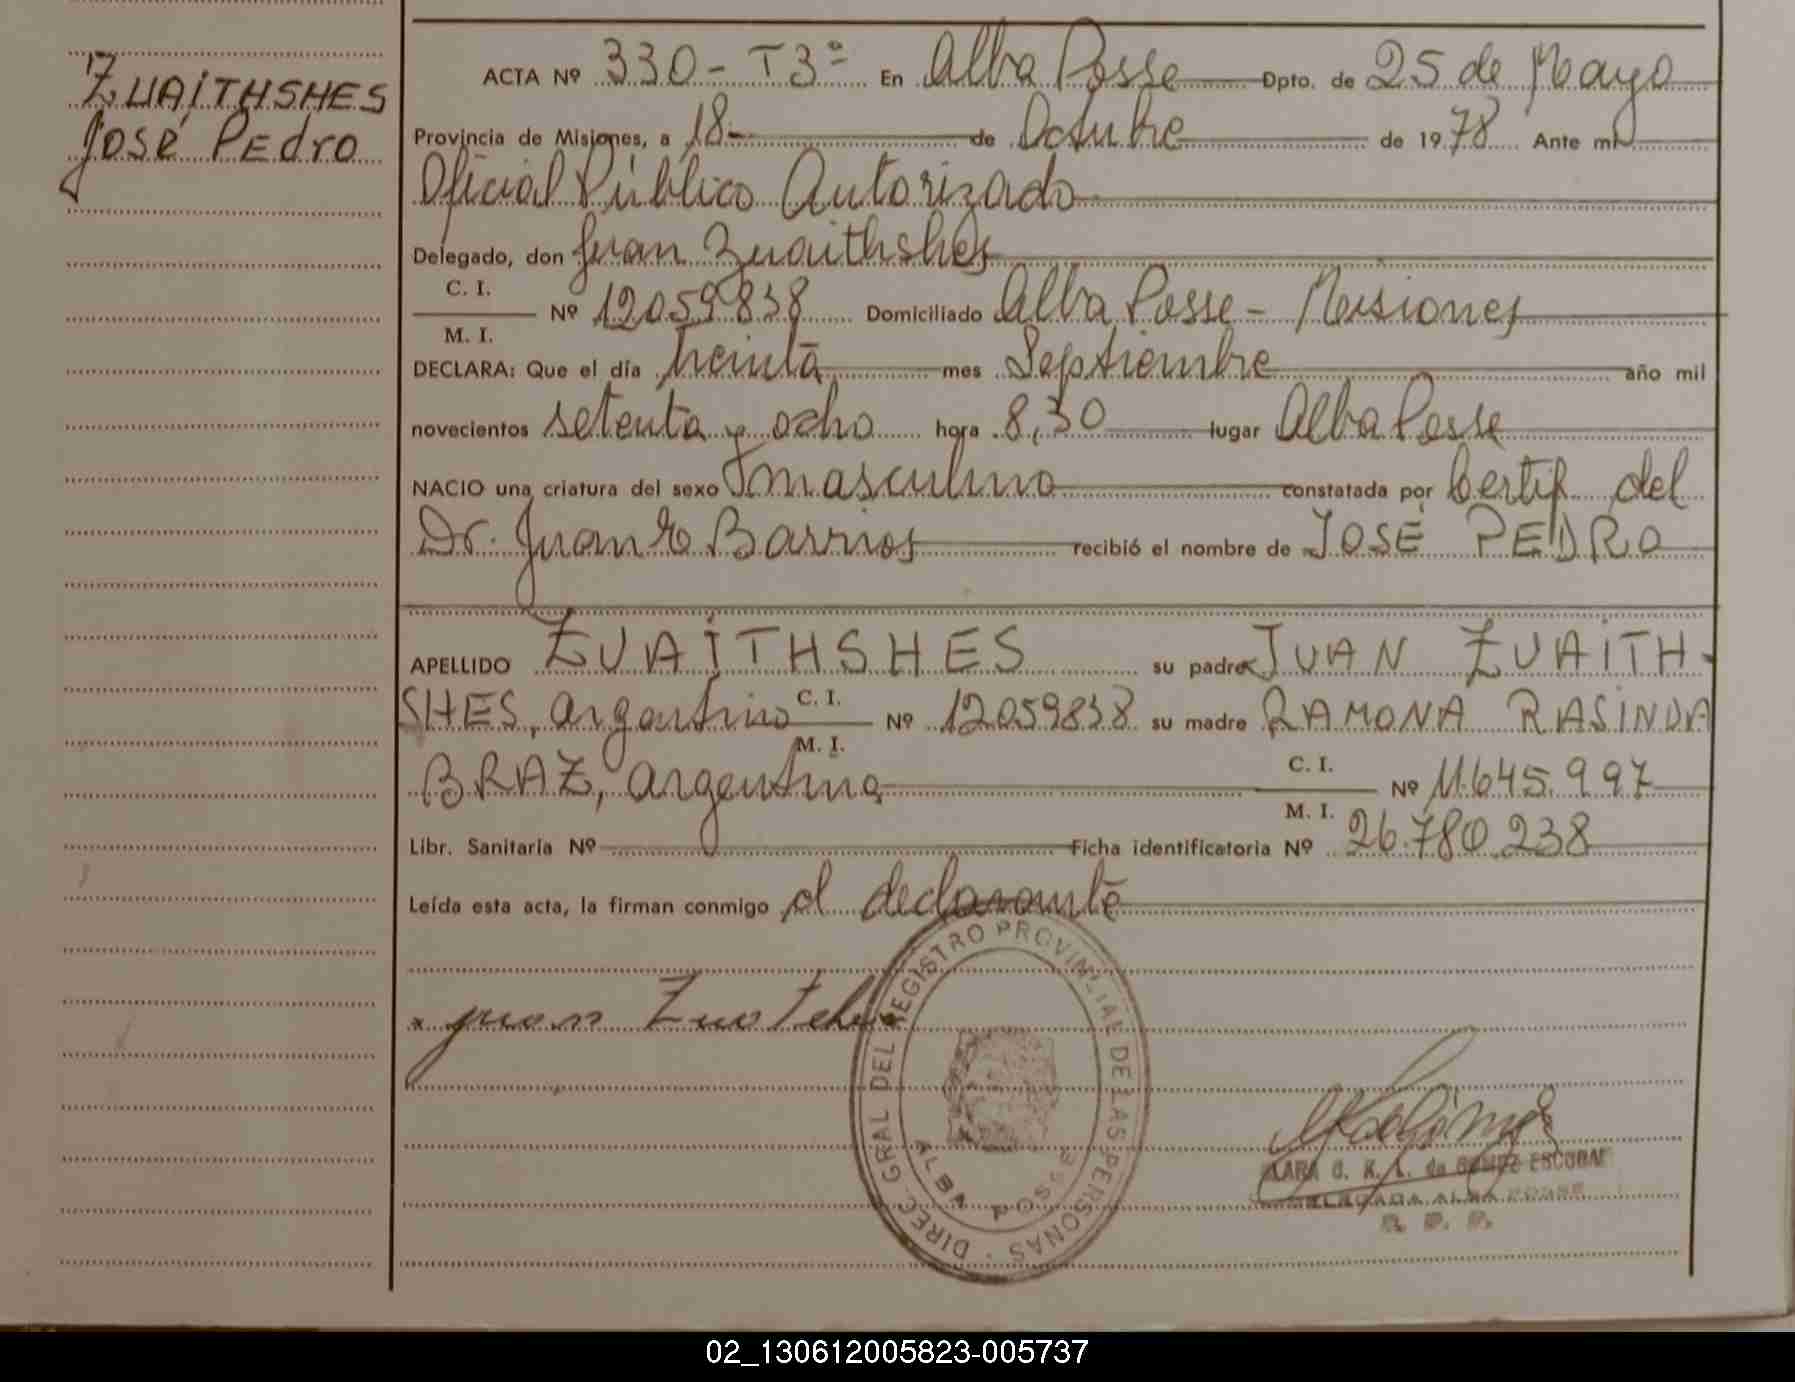 ZUAITHSHES
José Pedro
ACTA Nº 330 - T3º En Alba Posse Dpto. de 25 de Mayo
Provincia de Misiones, a 18 de Octubre de 1978 Ante mi
Oficial Público Autorizado
Delegado, don Juan Zuaithshes
C. I.
Nº 12059838 Domiciliado Alba Posse - Misiones
M. I.
DECLARA: Que el día treinta mes Septiembre año mil
novecientos setenta y ocho hora 8,30 lugar Alba Posse
NACIO una criatura del sexo masculino constatada por Certif del
Dr. Juan R Barrios recibió el nombre de JOSÉ PEDRO
APELLIDO ZUAITHSHES su padre JUAN ZUAITH-
SHES, argentino C. I. Nº 12059838 su madre RAMONA RASINDA
M. I.
BRAZ, argentina C. I. Nº 11.645.997
M. I.
Libr. Sanitaria Nº Ficha identificatoria Nº 26.780.238
Leída esta acta, la firman conmigo el declarante
DIREC. GRAL DEL REGISTRO PROVINCIAL DE LAS PERSONAS
ALBA POSSE
juan
de GOMEZ ESCOBAR
DELEGADA ALBA POSSE
02_130612005823-005737